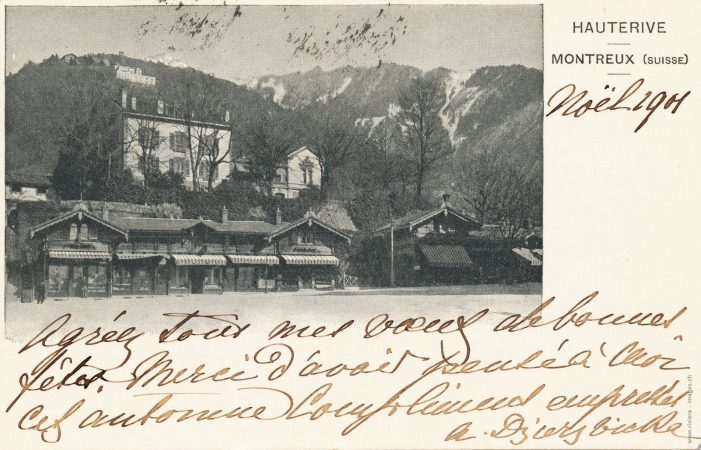 HAUTERIVE
MONTREUX (SUISSE)
Noël 1901
Agréez tous mes vœux de bonnes
fêtes. Merci d'avoir pensé à moi
cet automne Compliments empressés
a.
www.riviera-images.ch